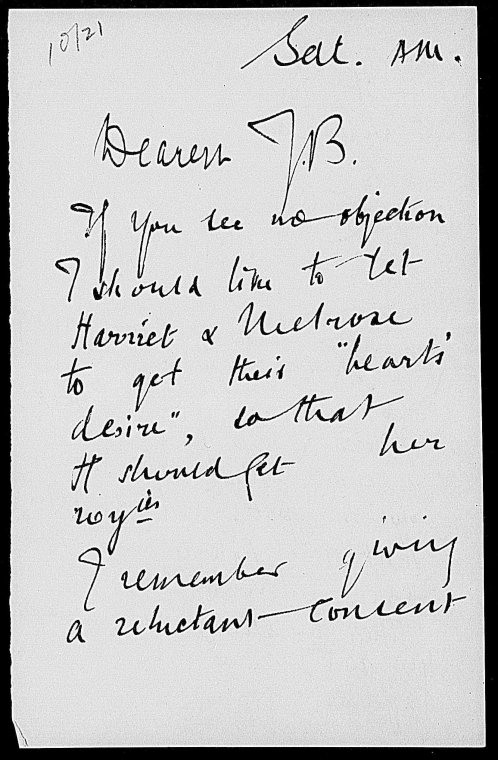 10/21
Sat. AM.
Dearest J.B.
If you see no objection
I should like to let
Harriet & Melrose
to get their "heart's
desire", so that
H should get her
roy^ies
I remember giving
a reluctant consent